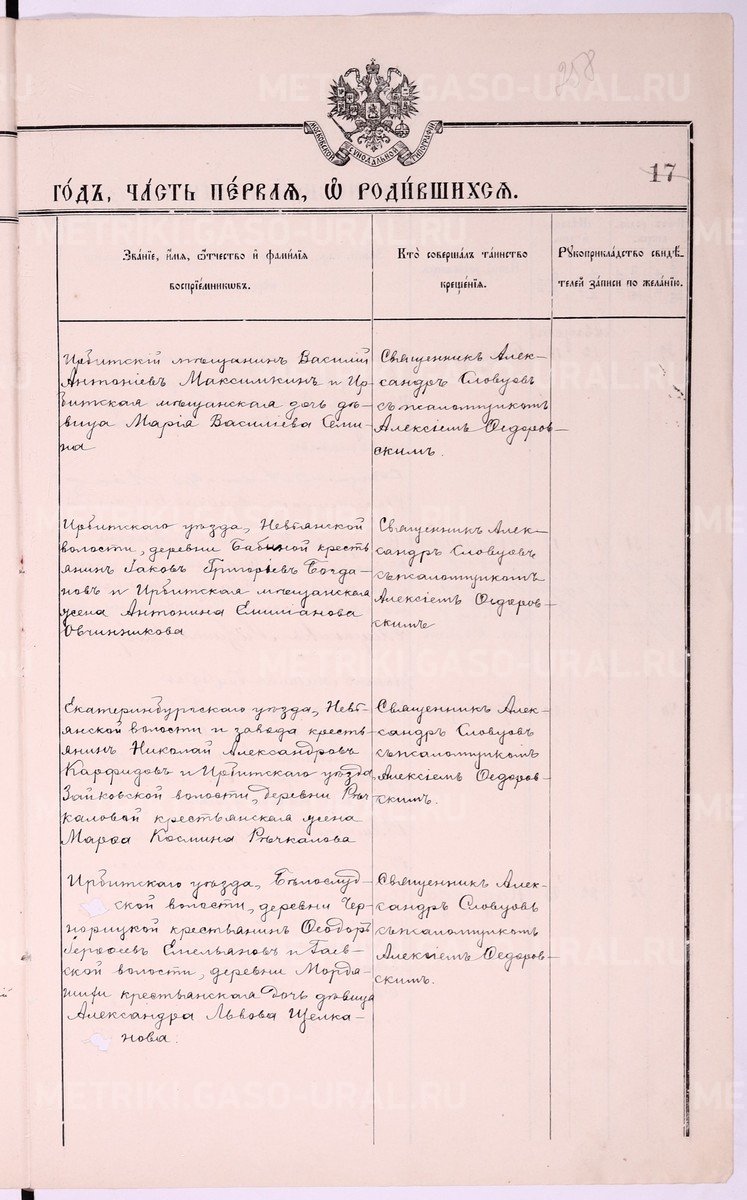 258
МОСКОВСКОЙ СѴНОДАЛЬНОЙ ТИПОГРАФІИ
17
ГО́ДЪ, ЧА́СТЬ ПЕ́РВАЯ, Ѽ РОДИ́ВШИХСЯ.
Зва́ніе, и́мя, ѻ҆́тчество и҆ фами́лія
воспріе́мниковъ.
Кто̀ соверша́лъ та́инство
креще́нія.
Рꙋкоприкла́дство свидѣ́-
телей за́писи по жела́нію.
Ирбитскій мѣщанинъ Василій
Антоніевъ Максимкин и Ир-
битская мѣщанская дочь дѣ-
вица Марія Василіева Семи-
на
Священникъ Алек-
сандръ Словцовъ
съ псаломщикомъ
Алексіемъ Ѳедоров-
скимъ.
Ирбитскаго уѣзда, Невьянской
волости, деревни Бабиной кресть-
янинъ Іаковъ Григоріевъ Богда-
новъ и Ирбитская мѣщанская
жена Антонина Емиліанова
Овчинникова
Священникъ Алек-
сандръ Словцовъ
съ псаломщикомъ
Алексіемъ Ѳедоров-
скимъ
Екатеринбургскаго уѣзда, Невь-
янской волости и завода кресть-
янинъ Николай Александровъ
Карфидовъ и Ирбитскаго уѣзда,
Зайковской волости, деревни Рѣч-
каловой крестьянская жена
Марѳа Космина Рѣчкалова
Священникъ Алек-
сандръ Словцовъ
съ псаломщикомъ
Алексіемъ Ѳедоров-
скимъ.
Ирбитскаго уѣзда, Бѣлослуд-
ской волости, деревни Чер-
норицкой крестьянинъ Ѳеодоръ
 Емельяновъ и Гаев-
ской волости, деревни Мордя-
шихи крестьянская дочь дѣвица
Александра Львова Щелка-
нова.
Священникъ Алек-
сандръ Словцовъ
съ псаломщикомъ
Алексіемъ Ѳедоров-
скимъ.
METRIKI.GASO-URAL.RU